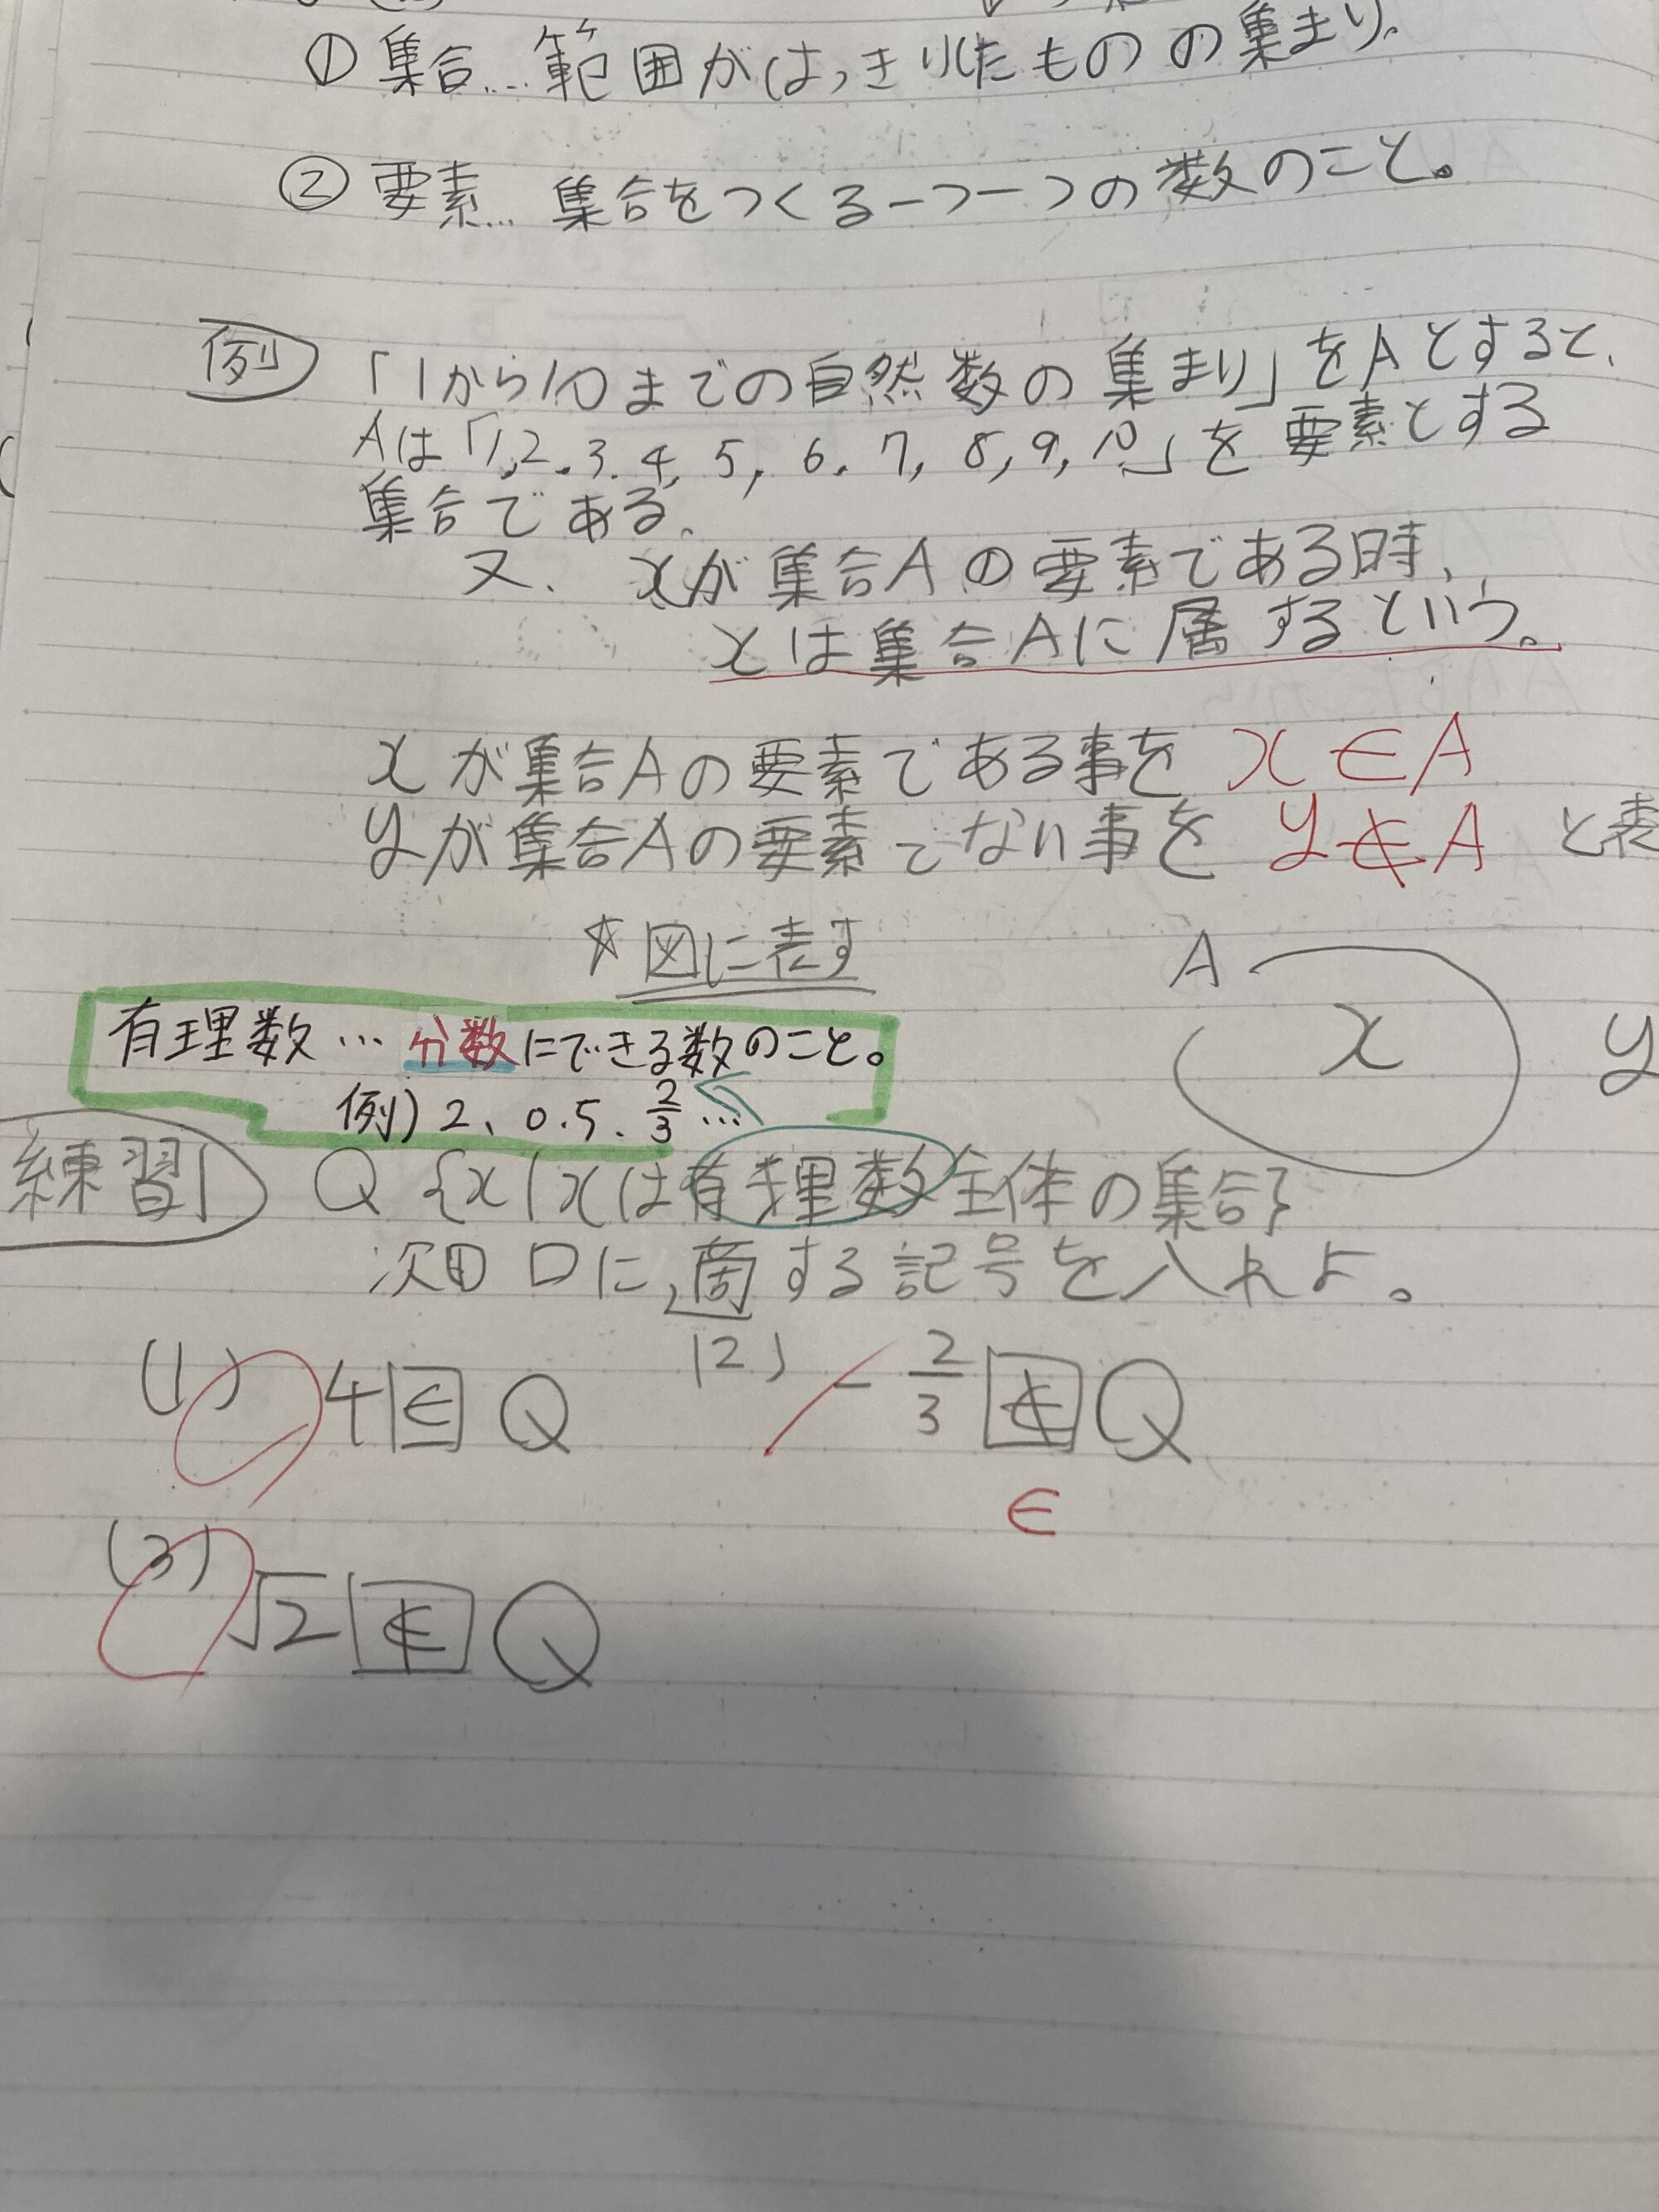 ① 集合… 範囲がはっきりしたものの集まり。
② 要素… 集合をつくる一つ一つの数のこと。
例 「1から10までの自然数の集まり」をAとすると、
Aは「1,2.3.4,5,6.7,8,9,10」を要素とする
集合である。
又、xが集合Aの要素である時、
xは集合Aに属するという。
xが集合Aの要素である事を x∈A
yが集合Aの要素でない事を y∉A と表
☆図に表す
A x y
有理数… 分数にできる数のこと。
例) 2、0.5、2/3 …
練習 Q {x|xは有理数全体の集合}
次の□に、適する記号を入れよ。
(1) 4 ∈ Q (2) -2/3 ∉ Q
∈
(3) √2 ∉ Q